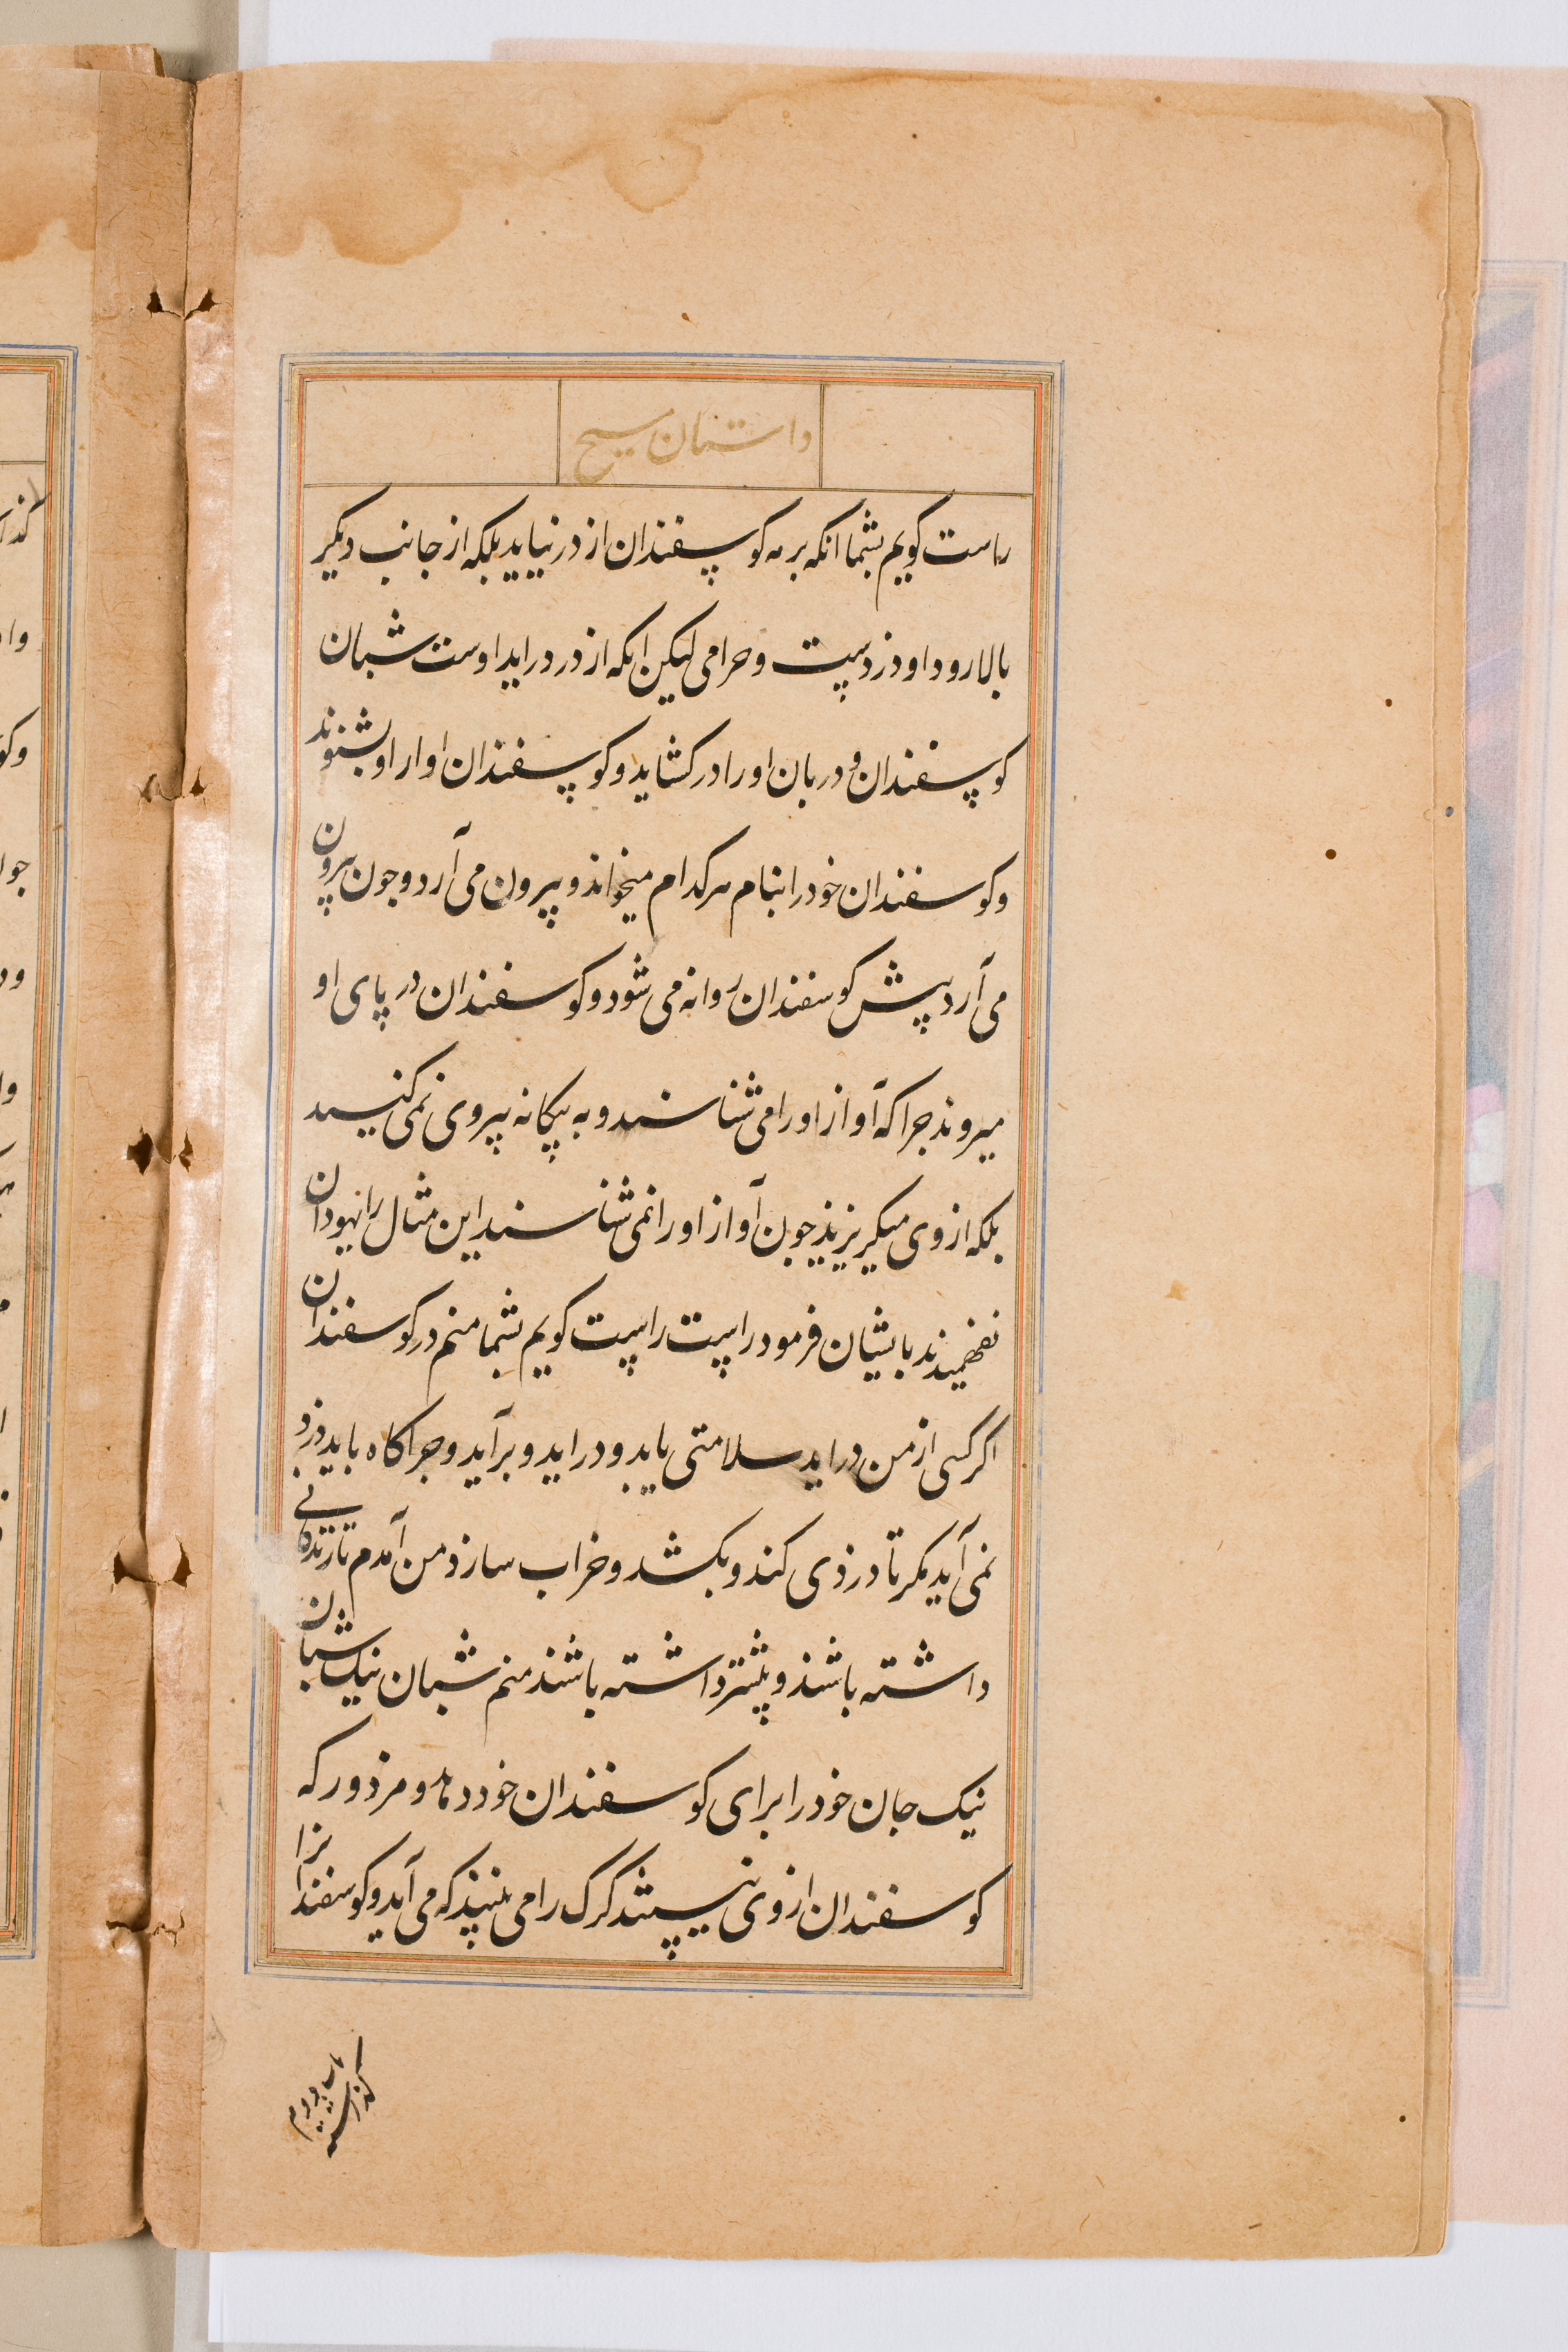 داستان مسیح
راست کویم بشما انکه برمه کوسفندان از در نیاید بلکه از جانب دیکر
بالا رود او دزدست و حرامی لیکن انکه از در دراید اوست شبان
کوسفندان و دربان او را در کشاید و کوسفندان اواز او بشنوند
و کوسفندان خود را بنام هر کدام میخواند و بیرون می آرد و چون بیرون
می آرد پیش کوسفندان روانه می شود و کوسفندان در پای او
میروند چرا که آواز او را می شناسند و به بیکانه پیروی نمی کنند
بلکه از وی میکریزند چون آواز او را نمی شناسند این مثال را یهودان
نفهمیدند بایشان فرمود راست راست کویم بشما منم در کوسفندان
اکر کسی از من دراید سلامتی یابد و دراید و برآید و چراکاه یابد دزد
نمی آید مکر تا دزدی کند و بکشد و خراب سازد من آمدم تا زندکانی
داشته باشند و بیشتر داشته باشند منم شبان نیک شبان
نیک جان خود را برای کوسفندان خود دهد و مزدور که
کوسفندان از وی نیستند کرک را می بیند که می آید و کوسفندانرا
کذاشته